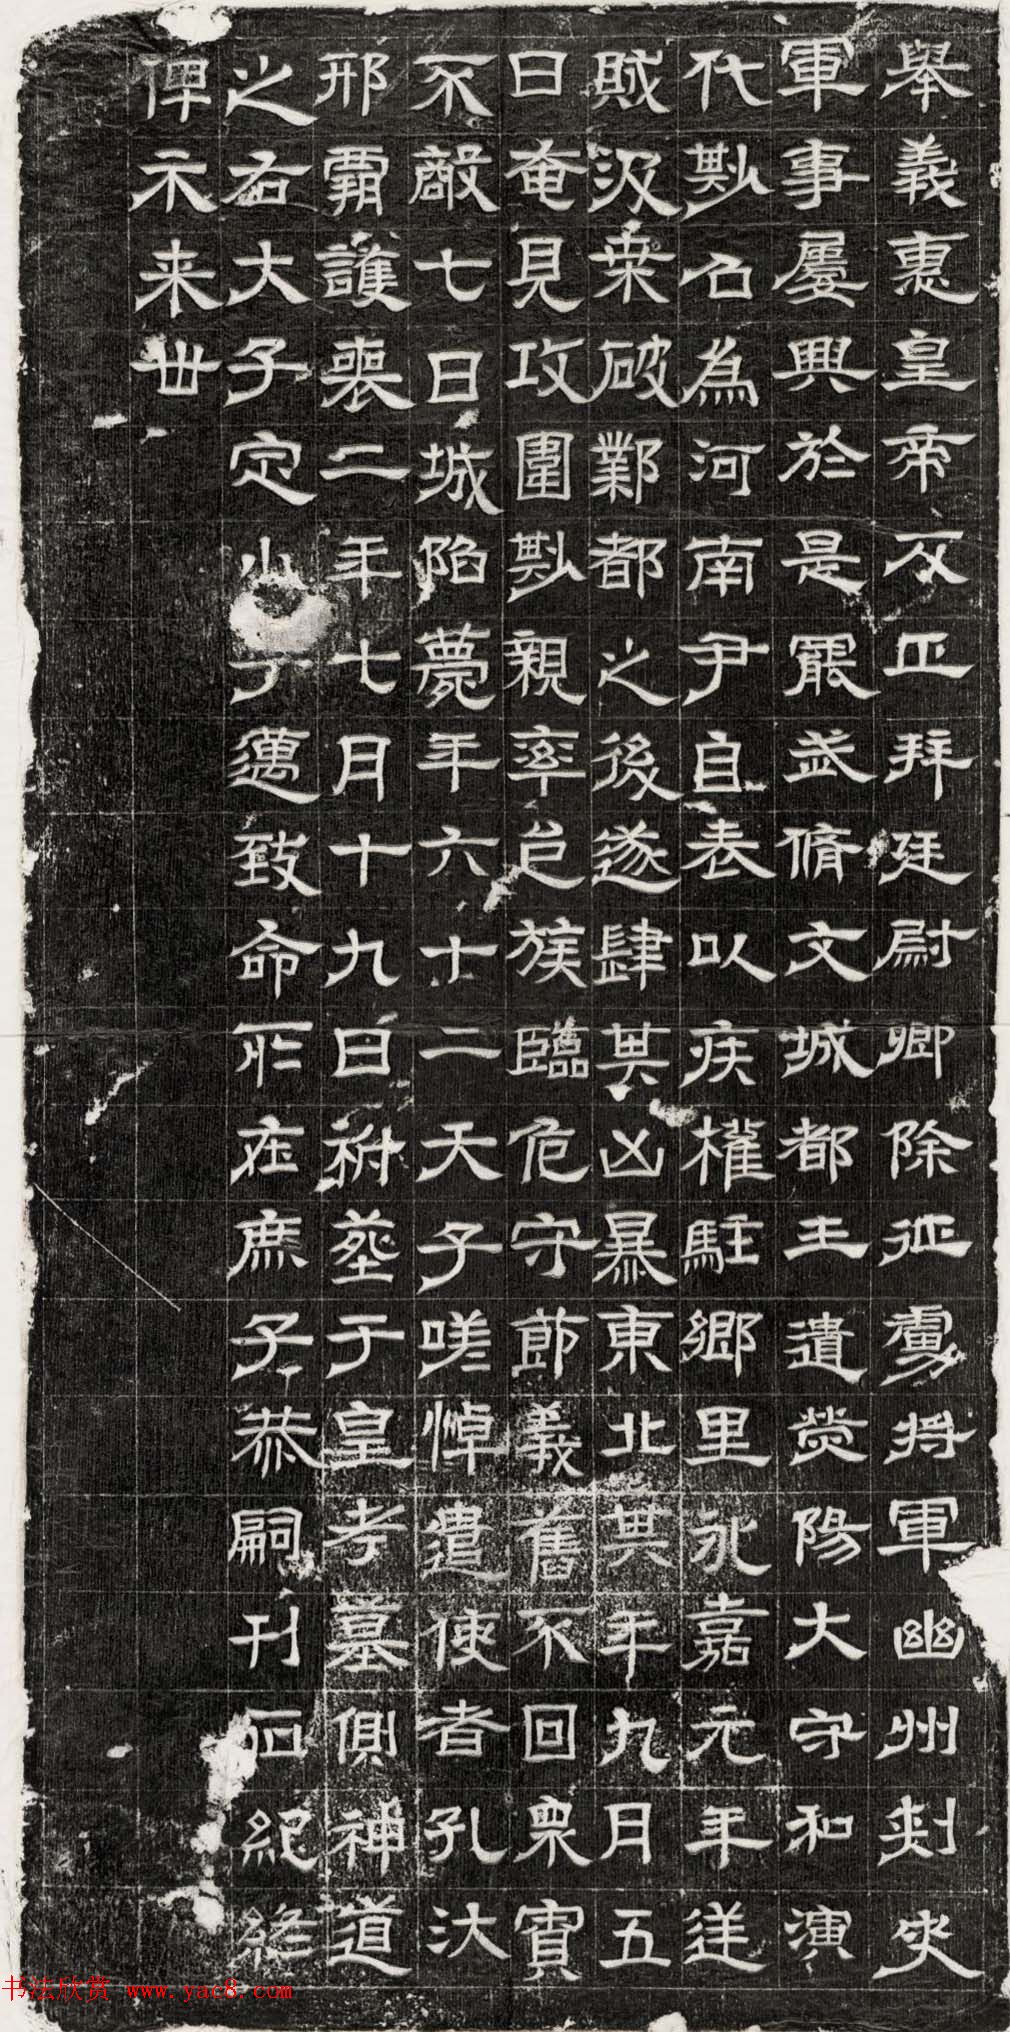 舉義惠皇帝反正拜廷尉卿除征虜將軍幽州刺史
軍事屢興於是罷武脩文城都王遣熒陽大守和演
代尠名為河南尹自表以疾權駐鄉里永嘉元年逆
賊汲桒破鄴都之後遂肆其凶暴東北其年九月五
日奄見攻圍尠親率邑族臨危守節義舊不回衆寡
不敵七日城陷薨年六十二天子嗟悼遣使者孔汏
邢霸護喪二年七月十九日祔葬于皇考墓側神道
之右大子定小子邁致命所在庶子恭嗣刊石紀終
俾示来世
书法欣赏 www.yac8.com